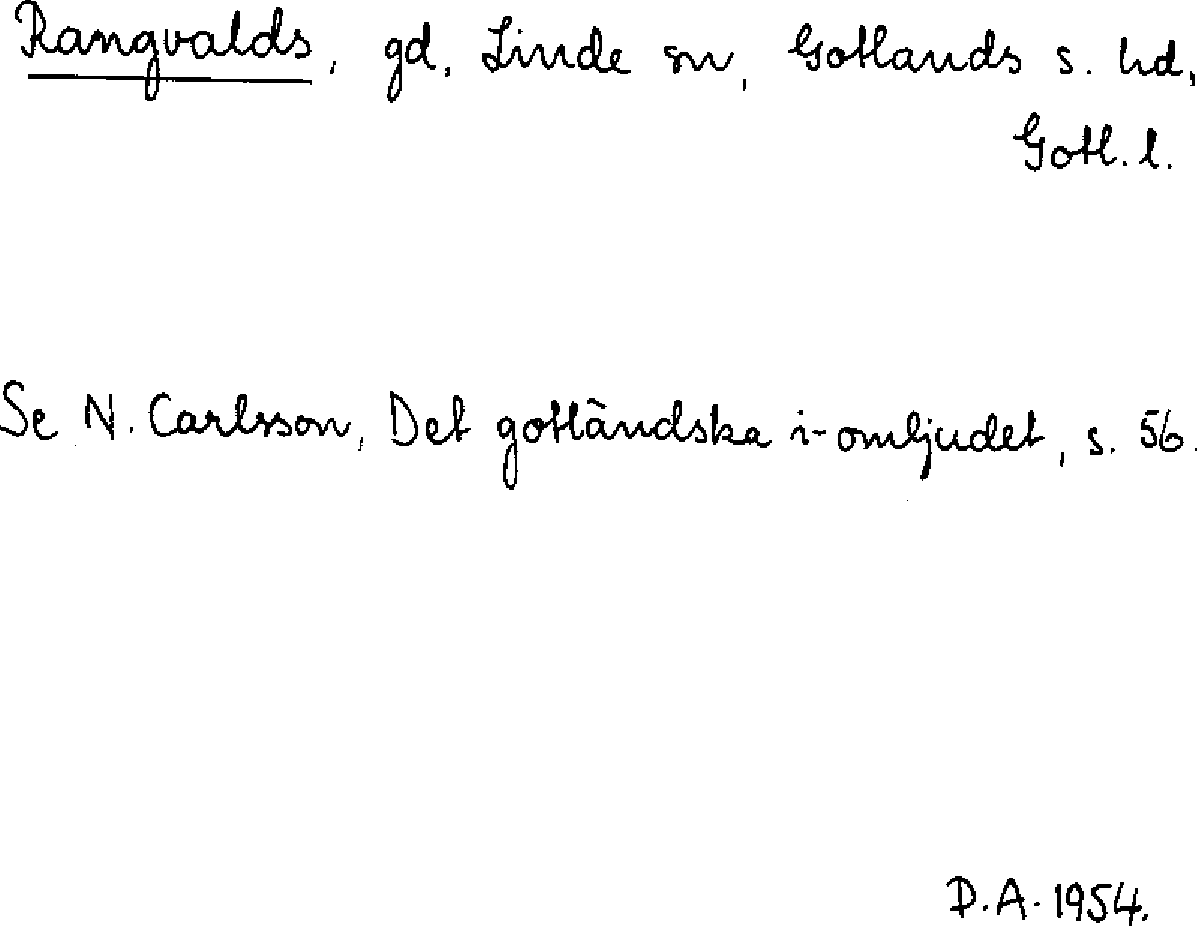 Rangvalds, gd, Linde sn, Gotlands s. hd,
Gotl. l.
Se N. Carlsson, Det gotländska i-omljudet, s. 56.
D.A. 1954.